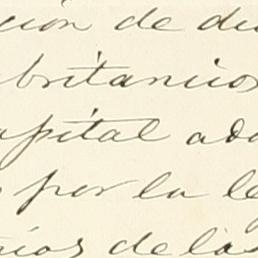 ción de di
britanicos
apital ado
por la le
nios de las